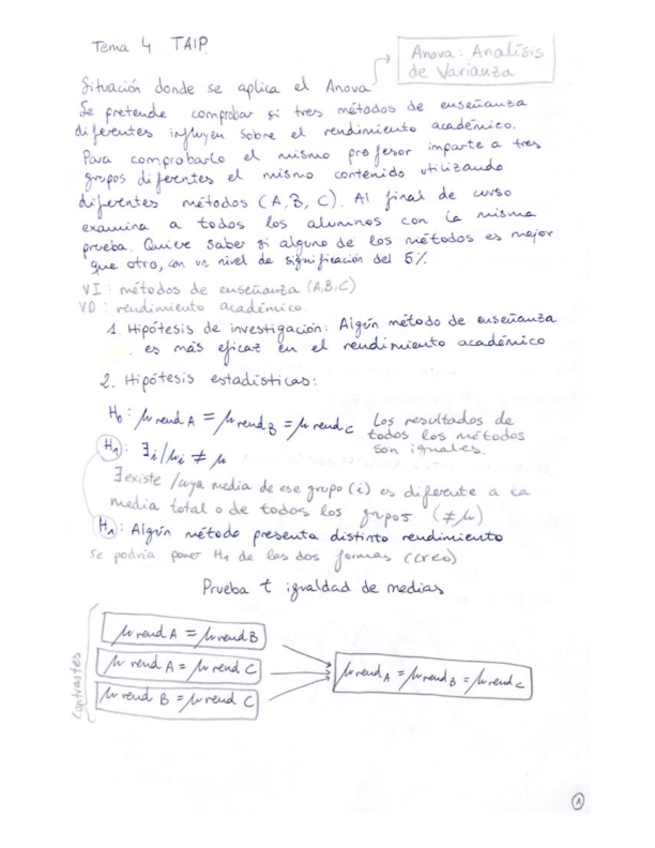 Tema 4 TAIP.
Anova: Analisis
de Varianza
Situación donde se aplica el Anova
Se pretende comprobar si tres métodos de enseñanza
diferentes influyen sobre el rendimiento académico.
Para comprobarlo el mismo profesor imparte a tres
grupos diferentes el mismo contenido utilizando
diferentes métodos (A, B, C). Al final de curso
examina a todos los alumnos con la misma
prueba. Quiere saber si alguno de los métodos es mejor
que otro, con un nivel de significación del 5%
VI: métodos de enseñanza (A,B,C)
VD: rendimiento académico.
1. Hipótesis de investigación: Algún método de enseñanza
es más eficaz en el rendimiento académico
2. Hipótesis estadísticas:
H₀: μ rend A = μ rend B = μ rend C Los resultados de
todos los métodos
son iguales.
H₁: ∃i/μi ≠ μ
∃ existe / cuya media de ese grupo (i) es diferente a la
media total o de todos los grupos (≠μ)
H₁: Algún método presenta distinto rendimiento
se podría poner H₁ de las dos formas (creo)
Prueba t igualdad de medias
Contrastes
μ rend A = μ rend B
μ rend A = μ rend C
μ rend B = μ rend C
μ rend A = μ rend B = μ rend C
1